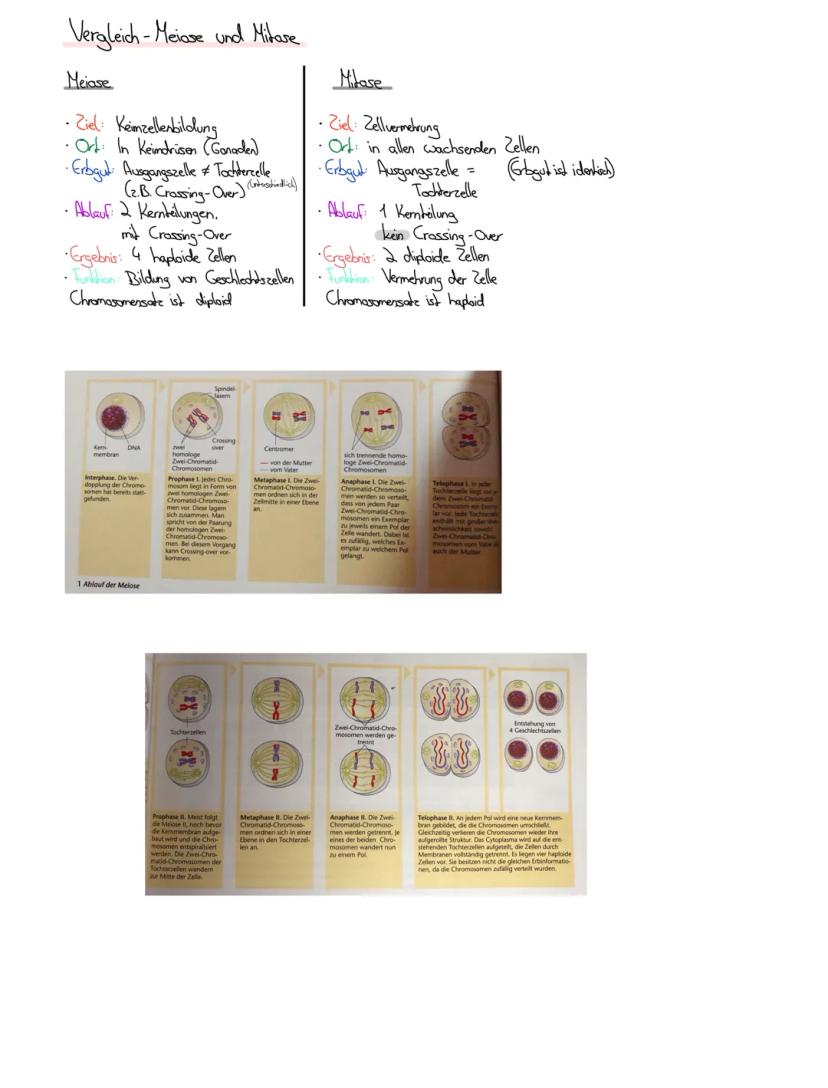 Vergleich - Meiose und Mitose
Meiose
· Ziel: Keimzellenbildung
· Ort: In Keimdrüsen (Gonaden)
· Erbgut: Ausgangszelle ≠ Tochterzelle
(z.B. Crossing-Over) (unterschiedlich)
· Ablauf: 2 Kernteilungen,
mit Crossing-Over
· Ergebnis: 4 haploide Zellen
· Funktion: Bildung von Geschlechtszellen
Chromosomensatz ist diploid
Mitose
· Ziel: Zellvermehrung
· Ort: in allen wachsenden Zellen
· Erbgut: Ausgangszelle = (Erbgut ist identisch)
Tochterzelle
· Ablauf: 1 Kernteilung
kein Crossing-Over
· Ergebnis: 2 diploide Zellen
· Funktion: Vermehrung der Zelle
Chromosomensatz ist haploid
Kern-
membran
DNA
Interphase. Die Ver-
dopplung der Chromo-
somen hat bereits statt-
gefunden.
Spindel-
fasern
Crossing
over
zwei
homologe
Zwei-Chromatid-
Chromosomen
Prophase I. Jedes Chro-
mosom liegt in Form von
zwei homologen Zwei-
Chromatid-Chromoso-
men vor. Diese lagern
sich zusammen. Man
spricht von der Paarung
der homologen Zwei-
Chromatid-Chromoso-
men. Bei diesem Vorgang
kann Crossing-over vor-
kommen.
Centromer
von der Mutter
vom Vater
Metaphase I. Die Zwei-
Chromatid-Chromoso-
men ordnen sich in der
Zellmitte in einer Ebene
an.
sich trennende homo-
loge Zwei-Chromatid-
Chromosomen
Anaphase I. Die Zwei-
Chromatid-Chromoso-
men werden so verteilt,
dass von jedem Paar
Zwei-Chromatid-Chro-
mosomen ein Exemplar
zu jeweils einem Pol der
Zelle wandert. Dabei ist
es zufällig, welches Ex-
emplar zu welchem Pol
gelangt.
Telophase I. In jeder
Tochterzelle liegt von je-
dem Zwei-Chromatid-
Chromosom ein Exemp
lar vor. Jede Tochterzelle
enthält mit großer Wahr-
scheinlichkeit sowohl
Zwei-Chromatid-Chro-
mosomen vom Vater als
auch der Mutter.
1 Ablauf der Meiose
Tochterzellen
Prophase II. Meist folgt
die Meiose II, noch bevor
die Kernmembran aufge-
baut wird und die Chro-
mosomen entspiralisiert
werden. Die Zwei-Chro-
matid-Chromosomen der
Tochterzellen wandern
zur Mitte der Zelle.
Metaphase II. Die Zwei-
Chromatid-Chromoso-
men ordnen sich in einer
Ebene in den Tochterzel-
len an.
Zwei-Chromatid-Chro-
mosomen werden ge-
trennt
Anaphase II. Die Zwei-
Chromatid-Chromoso-
men werden getrennt. Je
eines der beiden Chro-
mosomen wandert nun
zu einem Pol.
Entstehung von
4 Geschlechtszellen
Telophase II. An jedem Pol wird eine neue Kernmem-
bran gebildet, die die Chromosomen umschließt.
Gleichzeitig verlieren die Chromosomen wieder ihre
aufgerollte Struktur. Das Cytoplasma wird auf die ent-
stehenden Tochterzellen aufgeteilt, die Zellen durch
Membranen vollständig getrennt. Es liegen vier haploide
Zellen vor. Sie besitzen nicht die gleichen Erbinformatio-
nen, da die Chromosomen zufällig verteilt wurden.